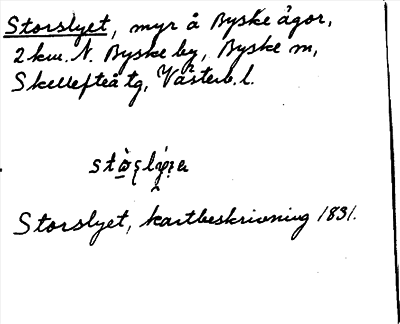 Storslyet, myr å Byske ägor,
2 km. N. Byske by, Byske sn,
Skellefteå tg, Västerb. l.
Storslyet, kartbeskrivning 1831.